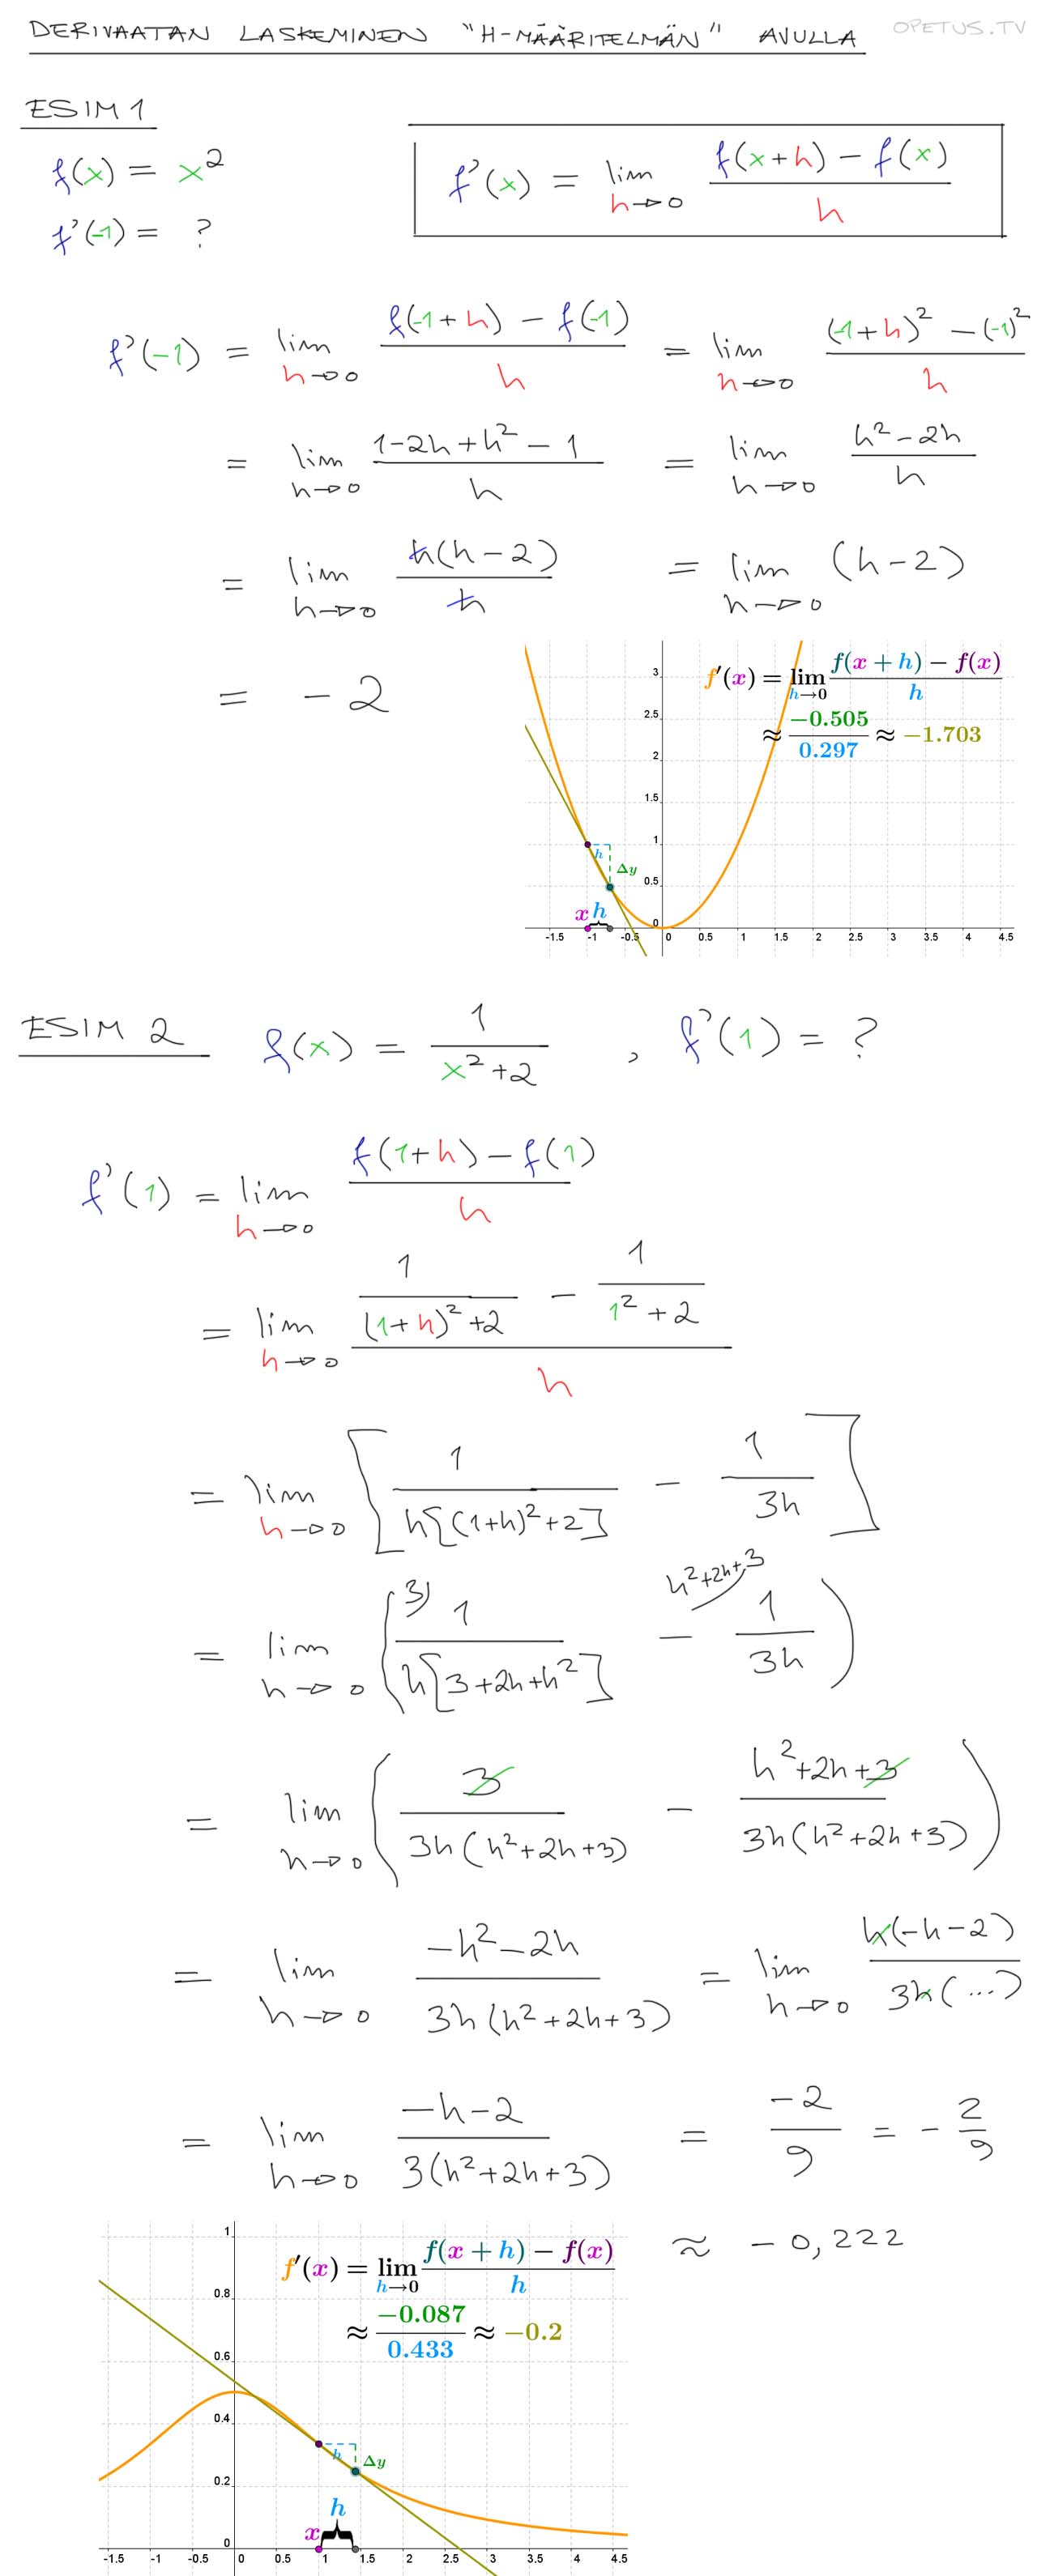 DERIVAATAN LASKEMINEN "H-MÄÄRITELMÄN" AVULLA OPETUS.TV
ESIM 1
f(x) = x²
f'(x) = lim h→0 (f(x+h) − f(x))/h
f'(-1) = ?
f'(-1) = lim h→0 (f(-1+h) − f(-1))/h = lim h→0 ((-1+h)² − (-1)²)/h
= lim h→0 (1−2h+h²−1)/h = lim h→0 (h²−2h)/h
= lim h→0 h(h−2)/h = lim h→0 (h−2)
= −2
f'(x) = lim h→0 (f(x + h) − f(x))/h
≈ −0.505/0.297 ≈ −1.703
3
2.5
2
1.5
1
h
Δy
0.5
x h
0
-1.5 -1 -0.5 0 0.5 1 1.5 2 2.5 3 3.5 4 4.5
ESIM 2 f(x) = 1/(x²+2) , f'(1) = ?
f'(1) = lim h→0 (f(1+h) − f(1))/h
= lim h→0 (1/((1+h)²+2) − 1/(1²+2))/h
= lim h→0 [1/(h[(1+h)²+2]) − 1/(3h)]
= lim h→0 ( 3) 1/(h[3+2h+h²]) − h²+2h+3) 1/(3h) )
= lim h→0 (3/(3h(h²+2h+3)) − (h²+2h+3)/(3h(h²+2h+3)))
= lim h→0 (−h²−2h)/(3h(h²+2h+3)) = lim h→0 h(−h−2)/(3h(...))
= lim h→0 (−h−2)/(3(h²+2h+3)) = −2/9 = −2/9
≈ −0,222
f'(x) = lim h→0 (f(x + h) − f(x))/h
≈ −0.087/0.433 ≈ −0.2
1
0.8
0.6
0.4
h
Δy
0.2
h
x
0
-1.5 -1 -0.5 0 0.5 1 1.5 2 2.5 3 3.5 4 4.5